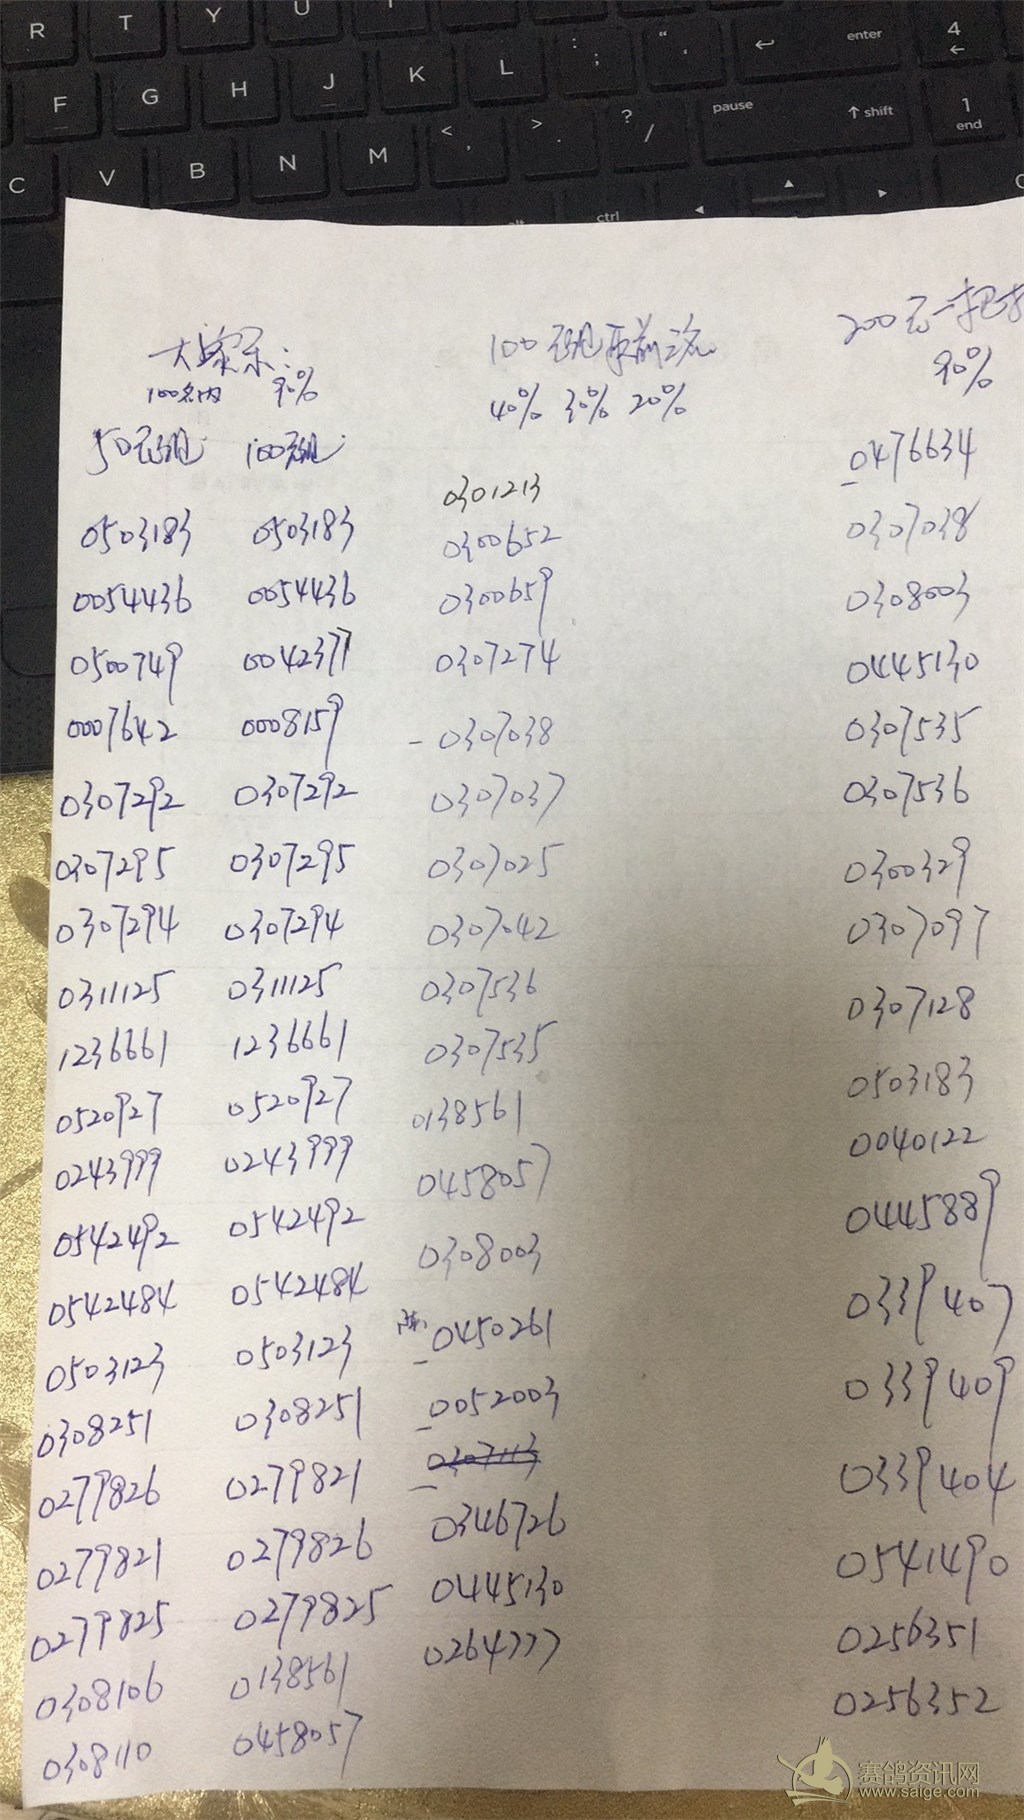 R T Y U I
F G H J K L : ; " ' enter 4
C V B N M < , > . ? / pause shift 1 end
alt ctrl
大家乐:
100名内 90%
50元组 100元组
0503183 0503183
0054436 0054436
0500749 0042377
0007642 0008159
0307292 0307292
0307295 0307295
0307294 0307294
0311125 0311125
1236661 1236661
0520927 0520927
0243999 0243999
0542492 0542492
0542484 0542484
0503123 0503123
0308251 0308251
0279826 0279821
0279821 0279826
0279825 0279825
0308106 0138561
0308110 0458057
100元组取前三名
40% 30% 20%
0301213
0300652
0300659
0307274
0307038
0307037
0307025
0307042
0307536
0307535
0138561
0458057
0308003
0450261
0052003
0307113
0346726
0445130
0264777
200元一把抓
90%
0476634
0307038
0308003
0445130
0307535
0307536
0300329
0307097
0307128
0503183
0040122
0445889
0339407
0339409
0339404
0541490
0256351
0256352
赛鸽资讯网
www.saige.com